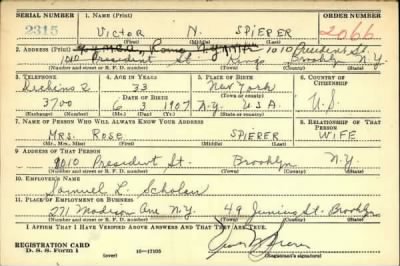 SERIAL NUMBER 1. NAME (Print) ORDER NUMBER
2315 VICTOR N. SPIERER 2066
(First) (Middle) (Last)
2. ADDRESS (Print) 1010 President St.
1010 President St. Kings Brooklyn N.Y.
(Number and street or R. F. D. number) (Town) (County) (State)
3. TELEPHONE 4. AGE IN YEARS 5. PLACE OF BIRTH 6. COUNTRY OF CITIZENSHIP
33 New York
DATE OF BIRTH (Town or county)
3700 6 3 1907 N.Y. U.S.A. U.S.
(Exchange) (Number) (Mo.) (Day) (Yr.) (State or country)
7. NAME OF PERSON WHO WILL ALWAYS KNOW YOUR ADDRESS 8. RELATIONSHIP OF THAT PERSON
MRS. ROSE SPIERER WIFE
(Mr., Mrs., Miss) (First) (Middle) (Last)
9. ADDRESS OF THAT PERSON
1010 President St. Brooklyn N.Y.
(Number and street or R. F. D. number) (Town) (County) (State)
10. EMPLOYER'S NAME
Samuel L. Scholan
11. PLACE OF EMPLOYMENT OR BUSINESS
271 Madison Ave N.Y. 49 St. Brooklyn
(Number and street or R. F. D. number) (Town) (County) (State)
I AFFIRM THAT I HAVE VERIFIED ABOVE ANSWERS AND THAT THEY ARE TRUE.
REGISTRATION CARD
D. S. S. Form 1 (over) 16—17105 (Registrant's signature)